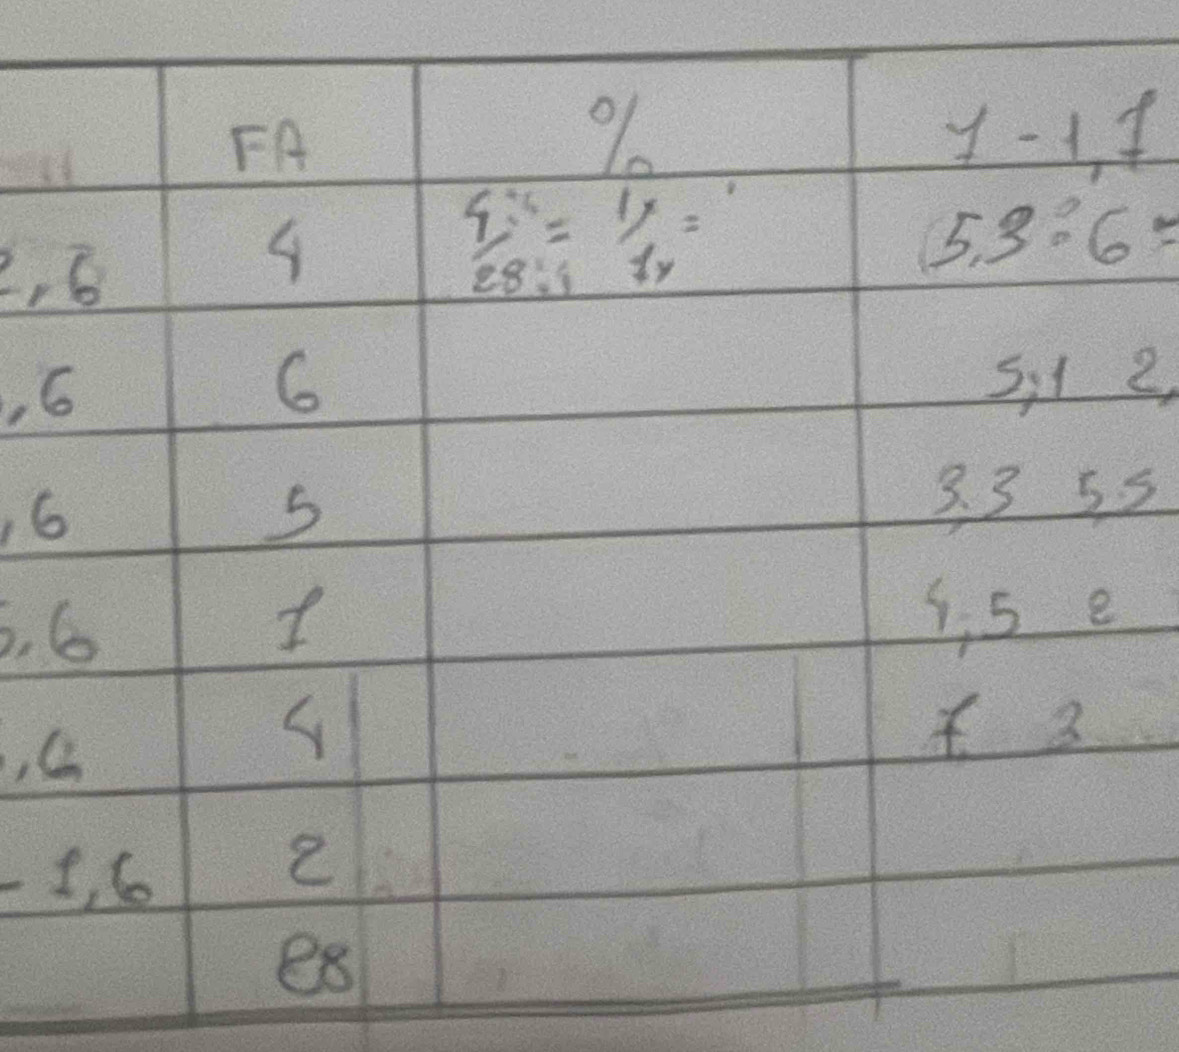 FA % 1 - 1,1
2,6 4 4:4 = 1 = 5,3 ÷ 6 =
28:4
,6 6 5,1 2,
,6 5 3,3 5,5
5,6 1 4,5 2
,6 4 7 3
- 1,6 2
28